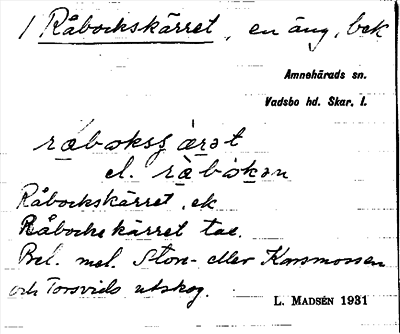 / Råbockskärret, en äng, bek
Amnehärads sn.
Vadsbo hd. Skar. l.
ràboksʂæ̀rət
el. rà̀bòkən
Råbockskärret, ek
Råbocks kärret tae.
Bel. mel. Stors- eller Korsmossen
och Torsvids utskog.
L. MADSÉN 1931